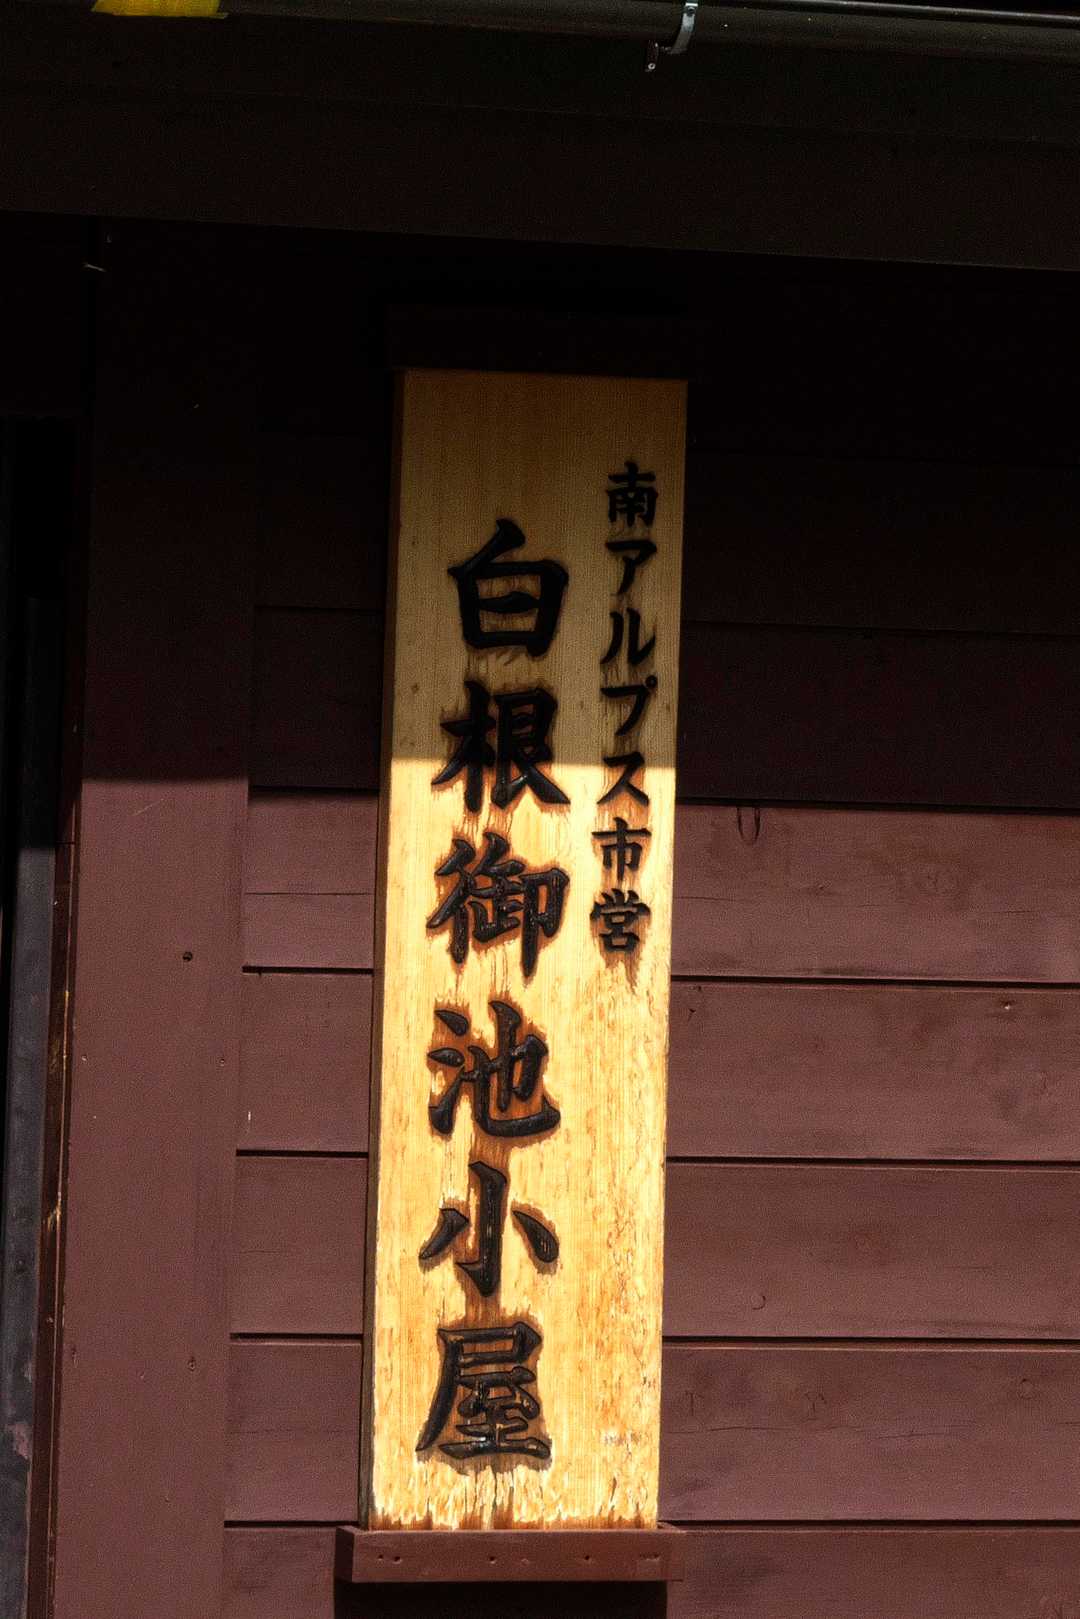 南アルプス市営
白根御池小屋